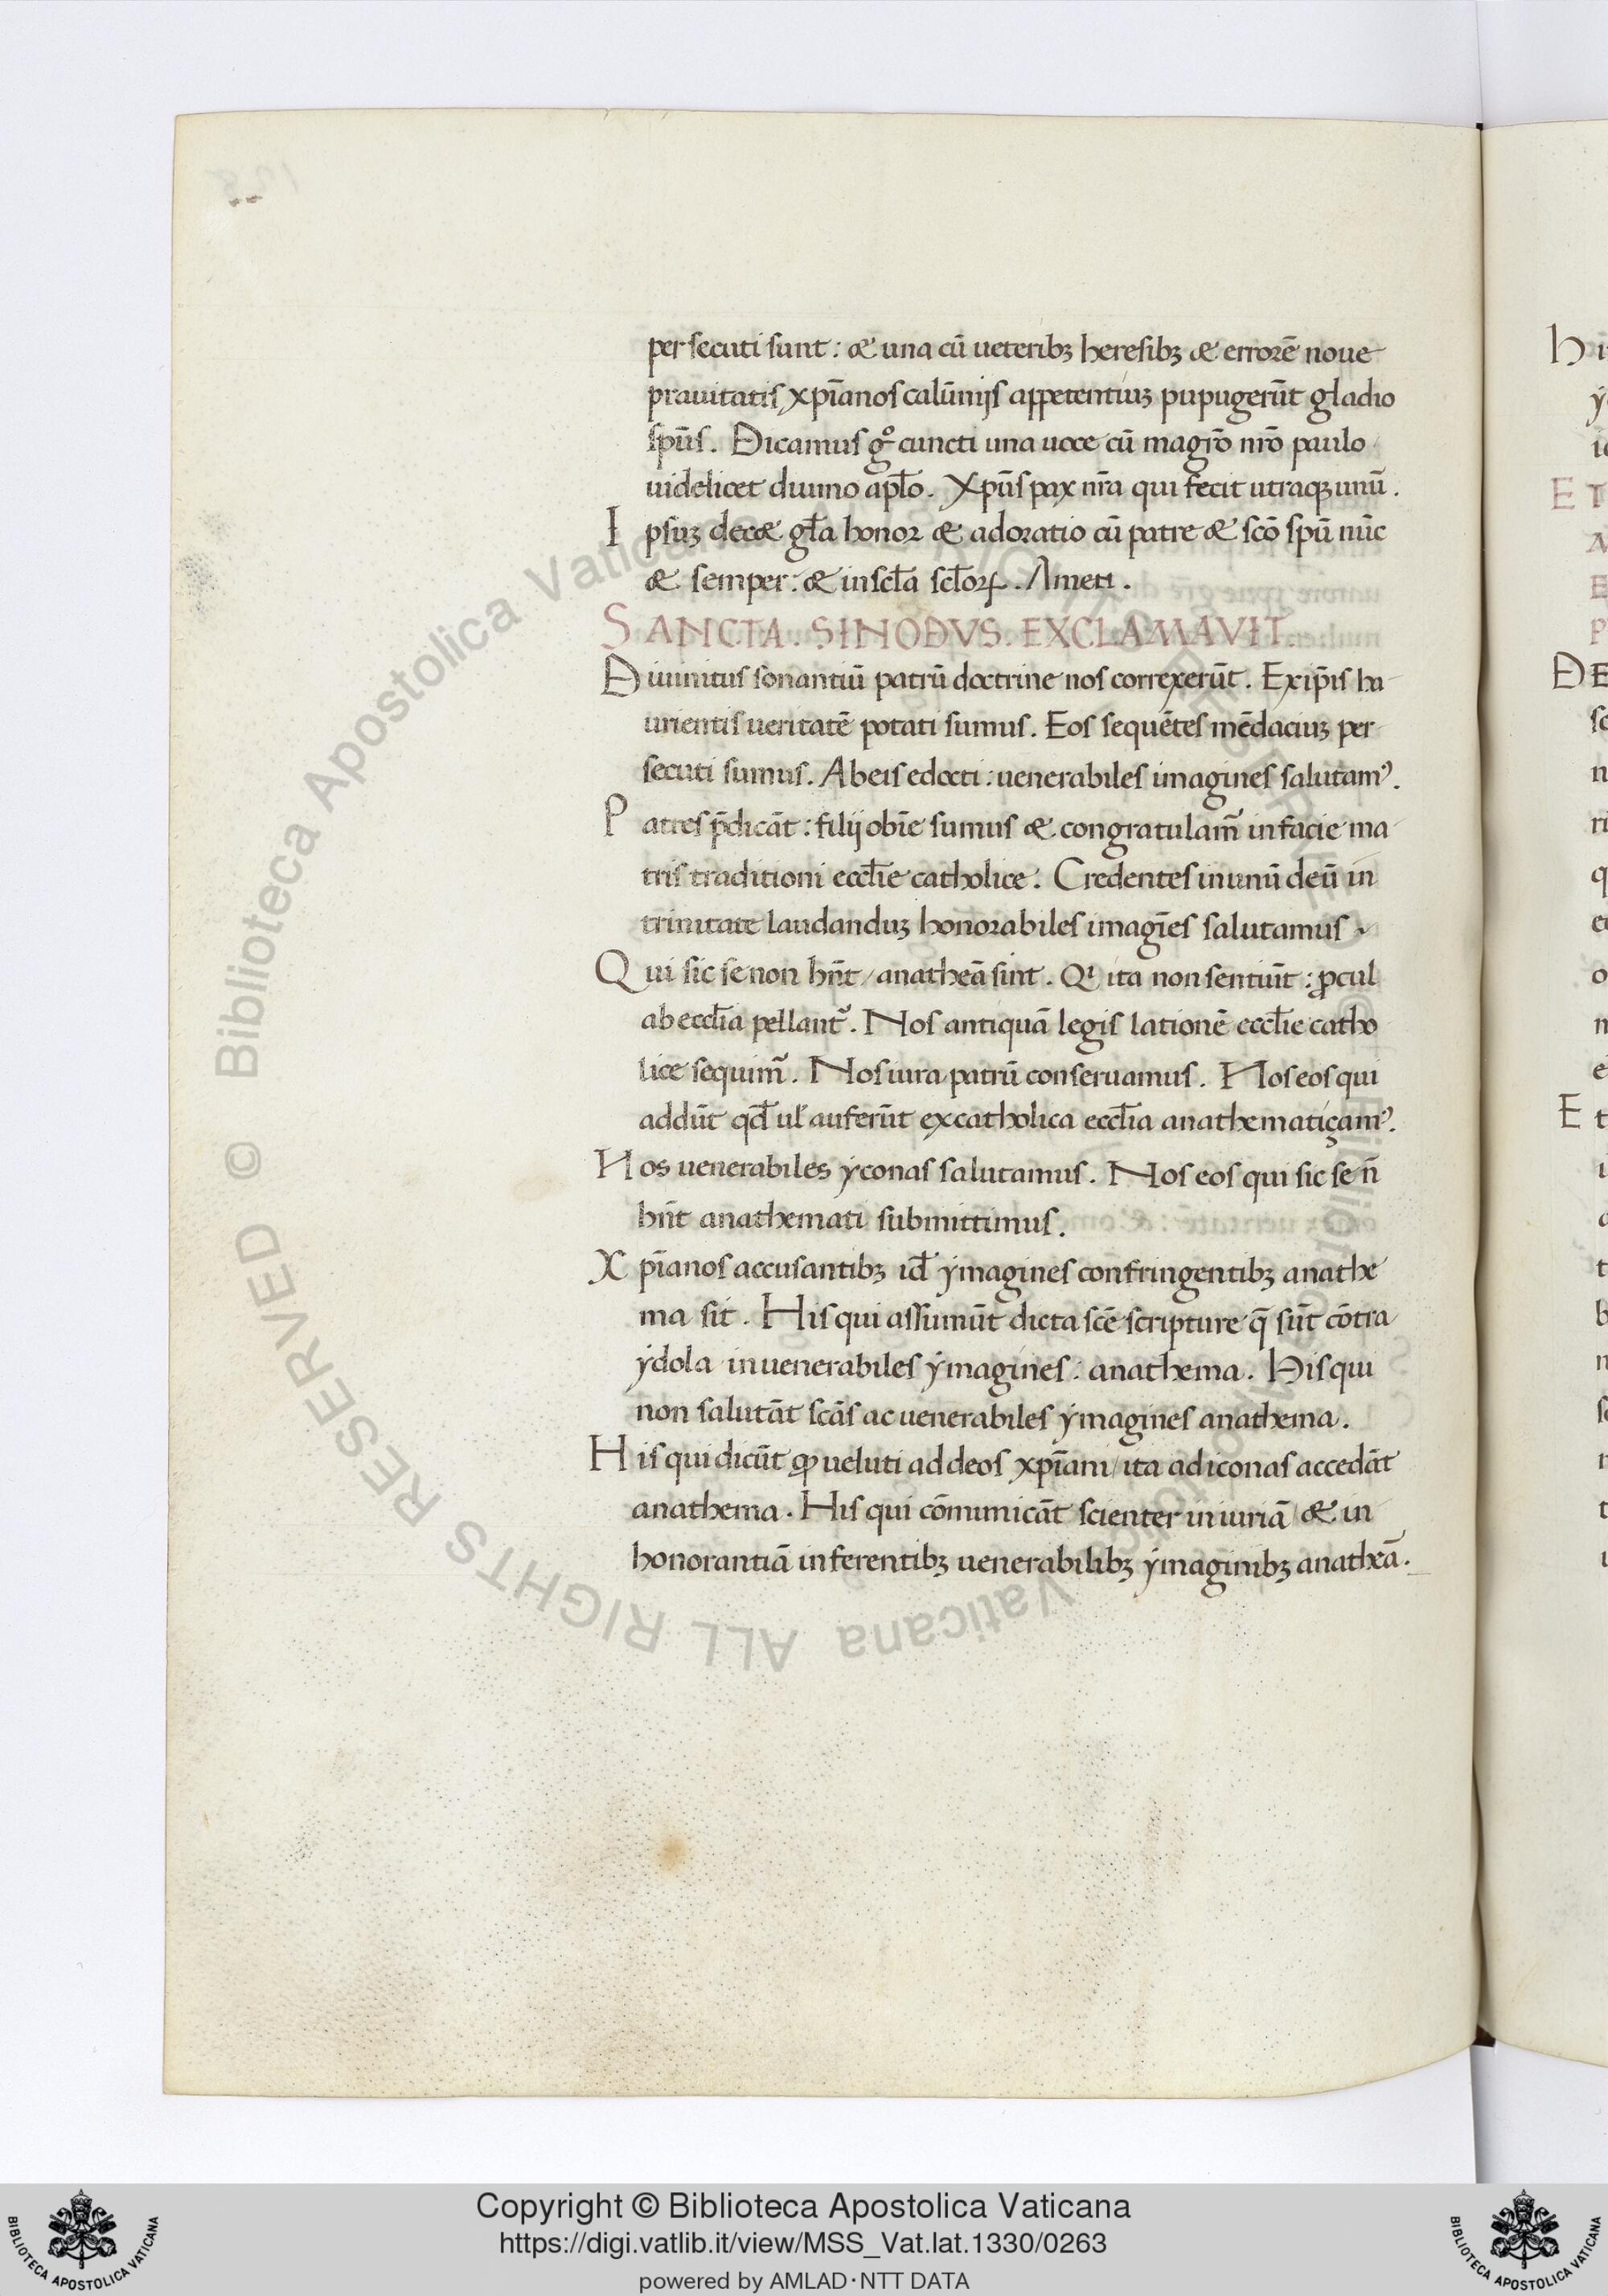 persecuti sunt: & una cū ueteribꝫ heresibꝫ & errorē noue
prauitatis xp̄ianos calūnijs appetentiuꝫ pupugerūt gladio
sp̄us. Dicamus gͦ cuncti una uoce cū magr̄o nr̄o paulo
uidelicet diuino apl̄o. Xp̄us pax nr̄a qui fecit utraqꝫ unū.
Ipsuꝫ dec& gl̄a honor & adoratio cū patre & sc̄o sp̄u nūc
& semper: & in scl̄a scl̄oꝝ. Amen.
SANCTA. SINODVS. EXCLAMAVIT.
Diuinitus sonantiū patrū doctrine nos correxerūt. Ex ip̄is ha
urientis ueritatē potati sumus. Eos sequētes mēdaciuꝫ per
secuti sumus. Ab eis edocti: uenerabiles imagines salutamꝰ.
Patres p̄dicāt: filij obīe sumus & congratulam̃ in facie ma
tris traditioni eccl̄ie catholice. Credentes in unū deū in
trinitate laudanduꝫ honorabiles imagīes salutamus
Qui sic se non hn̄t / anatheā sint. Qı ita non sentiūt: ꝓcul
ab eccl̄ia pellant̃. Nos antiquā legis lationē eccl̄ie catho
lice sequim̃. Nos iura patrū conseruamus. Nos eos qui
addūt qd̄ ul̛ auferūt ex catholica eccl̄ia anathematiçamꝰ.
Nos uenerabiles ẏconas salutamus. Nos eos qui sic se n̄
hn̄t anathemati submittimus.
Xp̄ianos accusantibꝫ id̄ ẏmagines confringentibꝫ anathe
ma sit. His qui assumūt dicta sc̄e scripture q̄ sūt cōtra
ẏdola in uenerabiles ẏmagines: anathema. His qui
non salutāt scās ac uenerabiles ẏmagines anathema.
His qui dicūt ꝙ ueluti ad deos xp̄iani / ita ad iconas accedāt
anathema. His qui cōmunicāt scienter iniuriā & in
honorantiā inferentibꝫ uenerabilibꝫ ẏmaginibꝫ anatheā.
© Biblioteca Apostolica Vaticana ALL RIGHTS RESERVED
Copyright © Biblioteca Apostolica Vaticana
https://digi.vatlib.it/view/MSS_Vat.lat.1330/0263
powered by AMLAD·NTT DATA
BIBLIOTECA APOSTOLICA VATICANA
BIBLIOTECA APOSTOLICA VATICANA